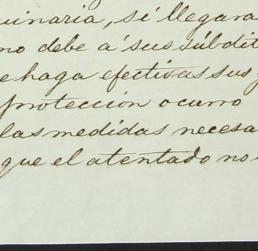 uinaria, sí llegara
no debe á sus súbdit
e haga efectivas sus
protección ocurro
las medidas necesa
que el atentado no